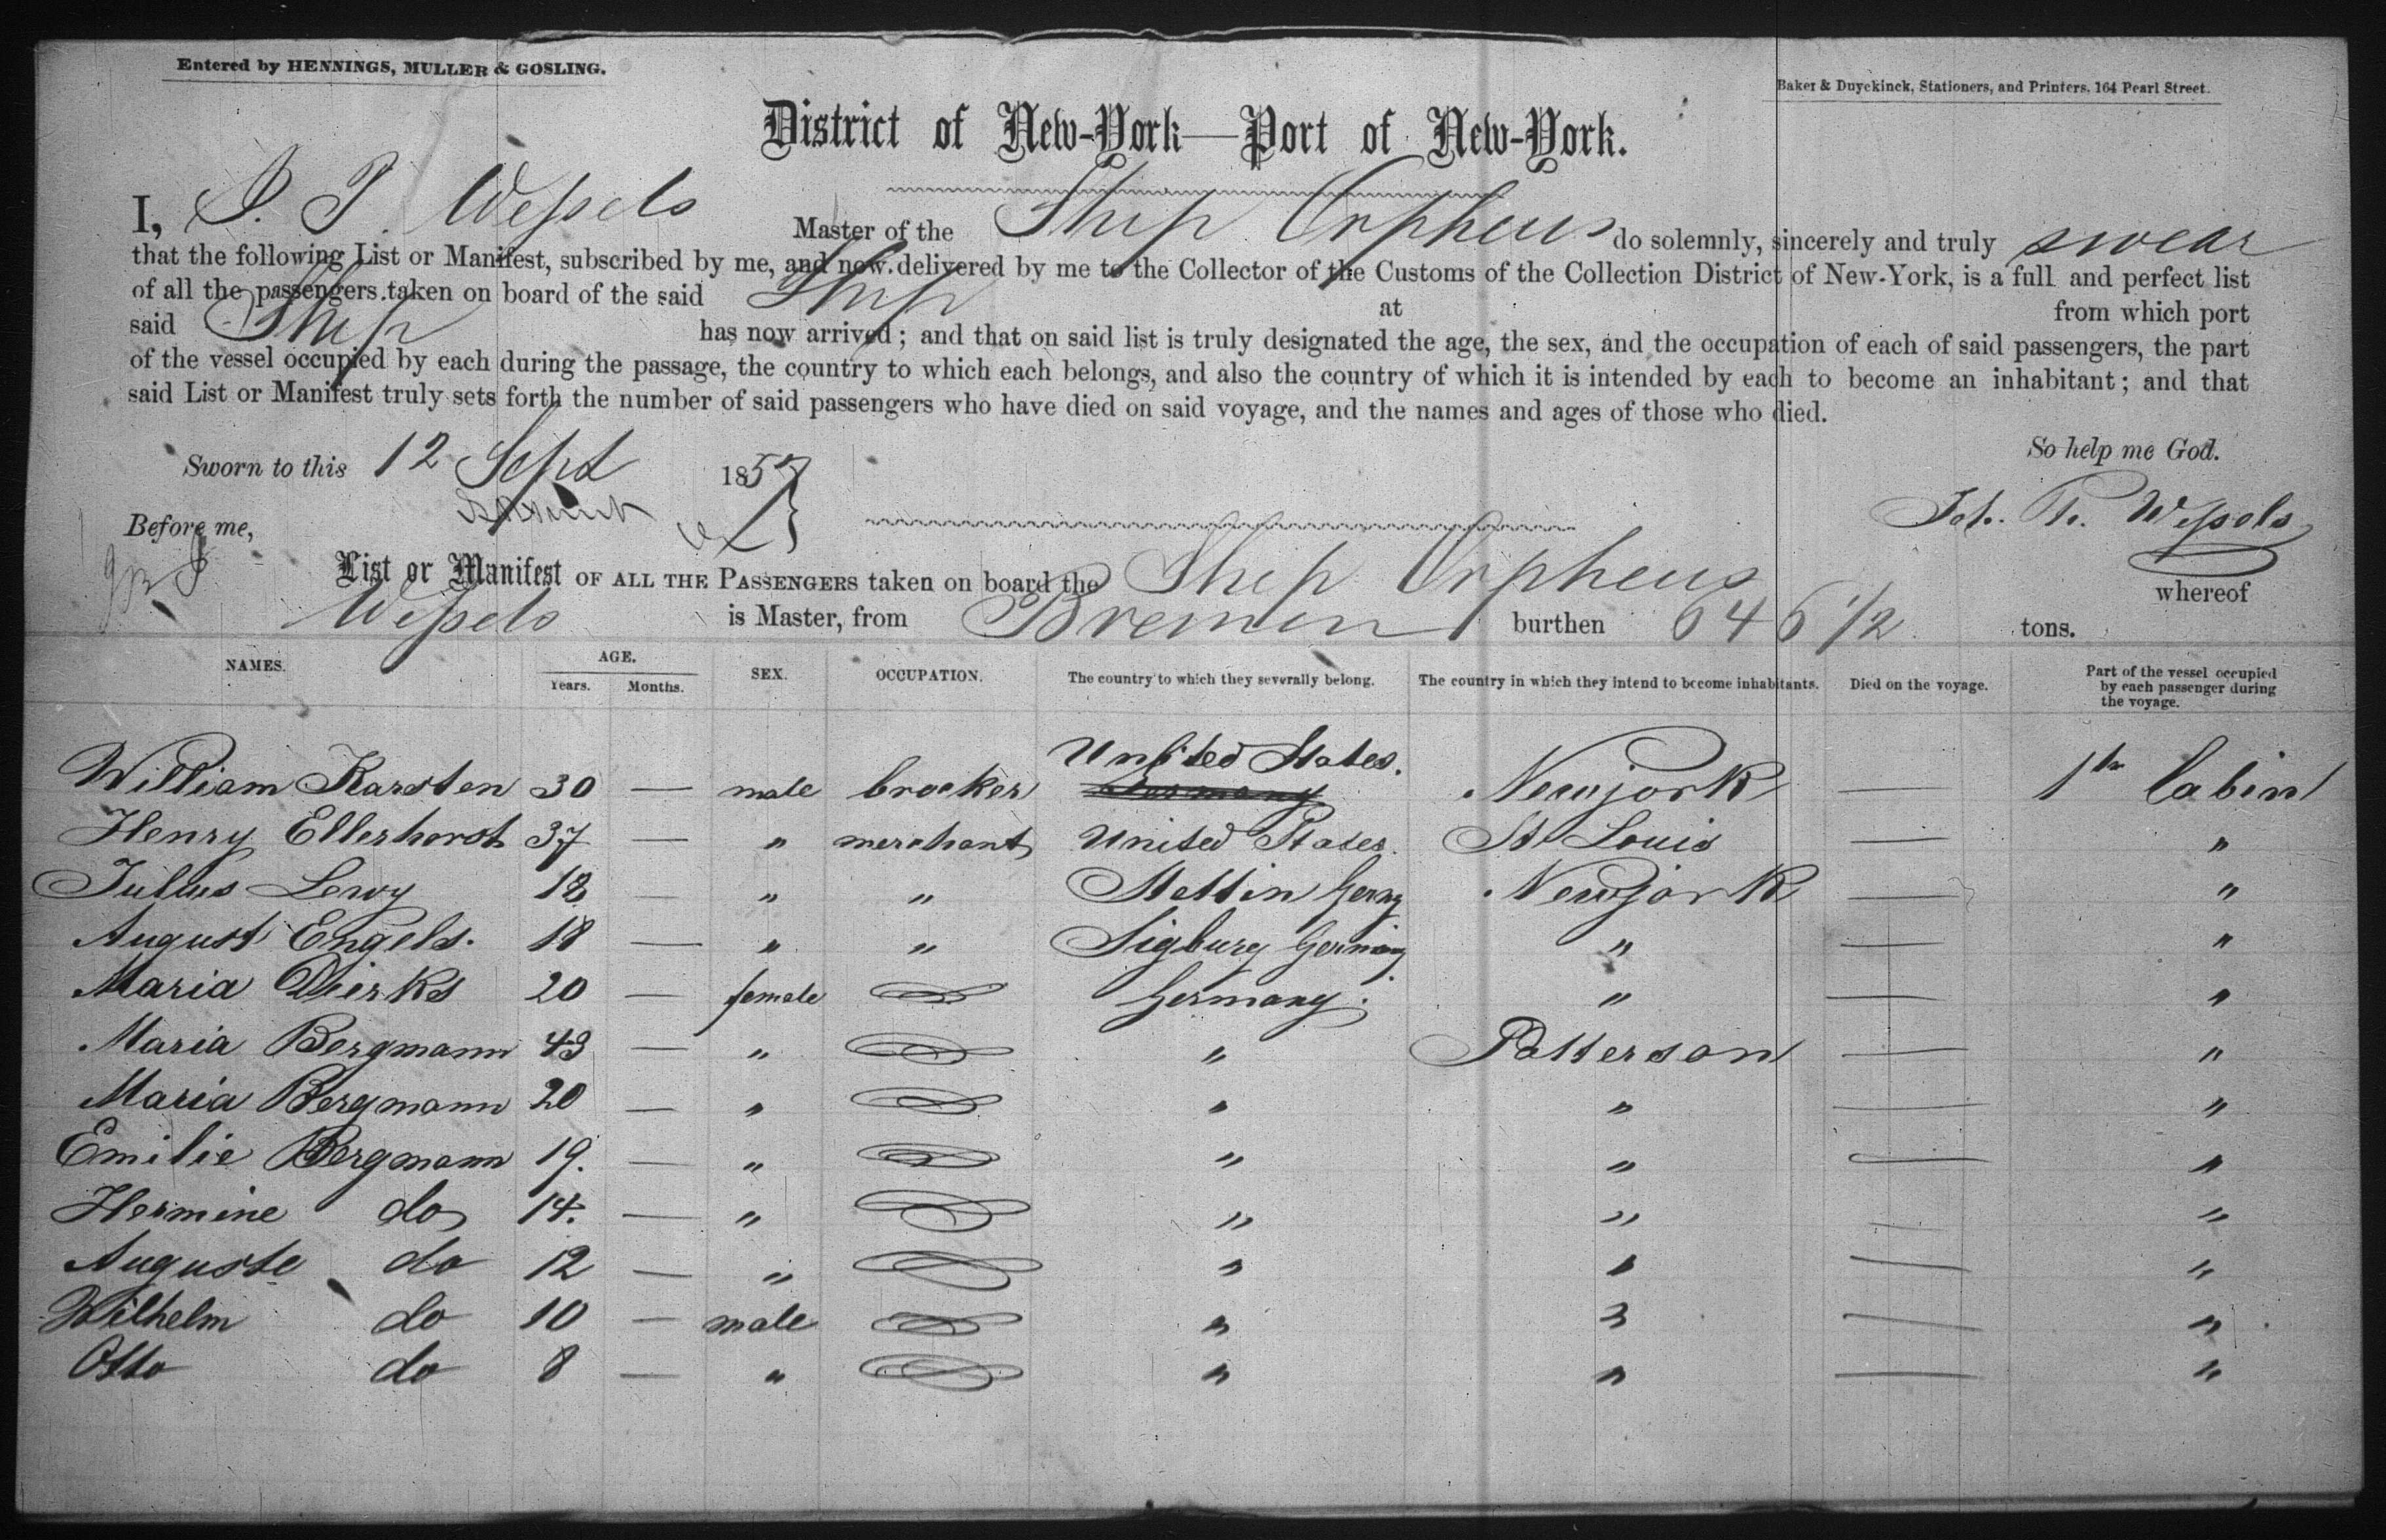 Entered by HENNINGS, MULLER & GOSLING.
Baker & Duyckinck, Stationers, and Printers, 164 Pearl Street.
District of New-York—Port of New-York.
I, J. P. Wessels Master of the Ship Orpheus do solemnly, sincerely and truly swear
that the following List or Manifest, subscribed by me, and now delivered by me to the Collector of the Customs of the Collection District of New-York, is a full and perfect list
of all the passengers taken on board of the said Ship at from which port
said Ship has now arrived; and that on said list is truly designated the age, the sex, and the occupation of each of said passengers, the part
of the vessel occupied by each during the passage, the country to which each belongs, and also the country of which it is intended by each to become an inhabitant; and that
said List or Manifest truly sets forth the number of said passengers who have died on said voyage, and the names and ages of those who died.
So help me God.
Sworn to this 12 Sept 1857
Joh. P. Wessels
Before me,
List or Manifest OF ALL THE PASSENGERS taken on board the Ship Orpheus whereof
Wessels is Master, from Bremen burthen 646 1/2 tons.
NAMES. AGE. Years. Months. SEX. OCCUPATION. The country to which they severally belong. The country in which they intend to become inhabitants. Died on the voyage. Part of the vessel occupied by each passenger during the voyage.
United States.
William Karsten 30 — male brocker Germany Newjork — 1te Cabin
Henry Ellerhorst 37 — " merchant United States. St Louis — "
Julius Lewy 18 — " " Stettin Germy Newjork — "
August Engels. 18 — " " Sigburg Germany " — "
Maria Dierks 20 — female Germany. " — "
Maria Bergmann 43 — " " Patterson — "
Maria Bergmann 20 — " " " — "
Emilie Bergmann 19. — " " " — "
Hermine do 14. — " " " — "
Auguste do 12 — " " " — "
Wilhelm do 10 — male " " — "
Otto do 8 — " " " — "